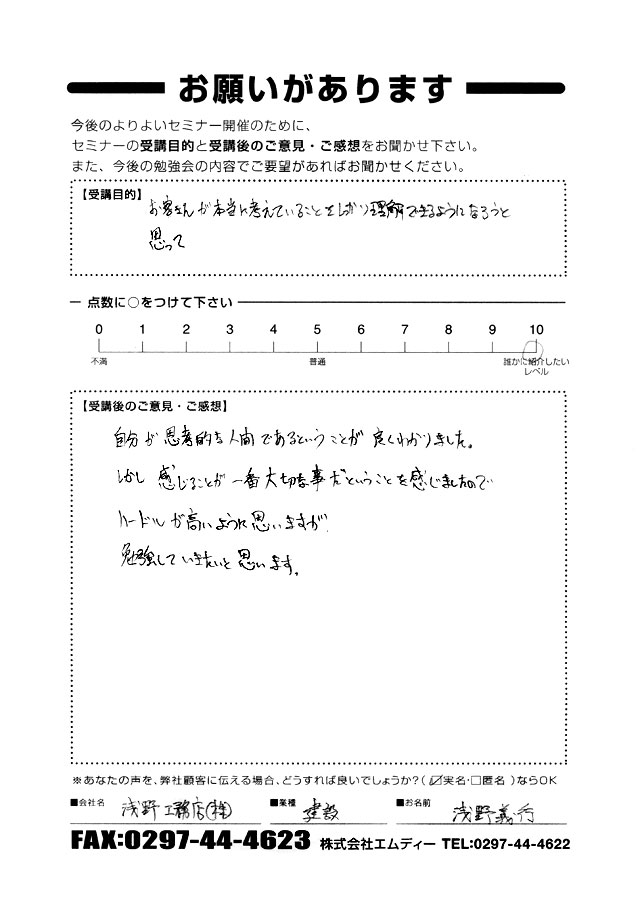 お願いがあります
今後のよりよいセミナー開催のために、
セミナーの受講目的と受講後のご意見・ご感想をお聞かせ下さい。
また、今後の勉強会の内容でご要望があればお聞かせください。
【受講目的】
お客さんが本当に考えていることをしっかり理解できるようになろうと
思って
点数に○をつけて下さい
0 1 2 3 4 5 6 7 8 9 10
不満 普通 誰かに紹介したい
レベル
【受講後のご意見・ご感想】
自分が思考的な人間であるということが良くわかりました。
しかし感じることが一番大切な事だということを感じましたので
ハードルが高いように思いますが
勉強していきたいと思います。
※あなたの声を、弊社顧客に伝える場合、どうすれば良いでしょうか?(☑実名・□匿名)ならOK
■会社名 浅野工務店(株) ■業種 建設 ■お名前 浅野義行
FAX:0297-44-4623 株式会社エムディー TEL:0297-44-4622